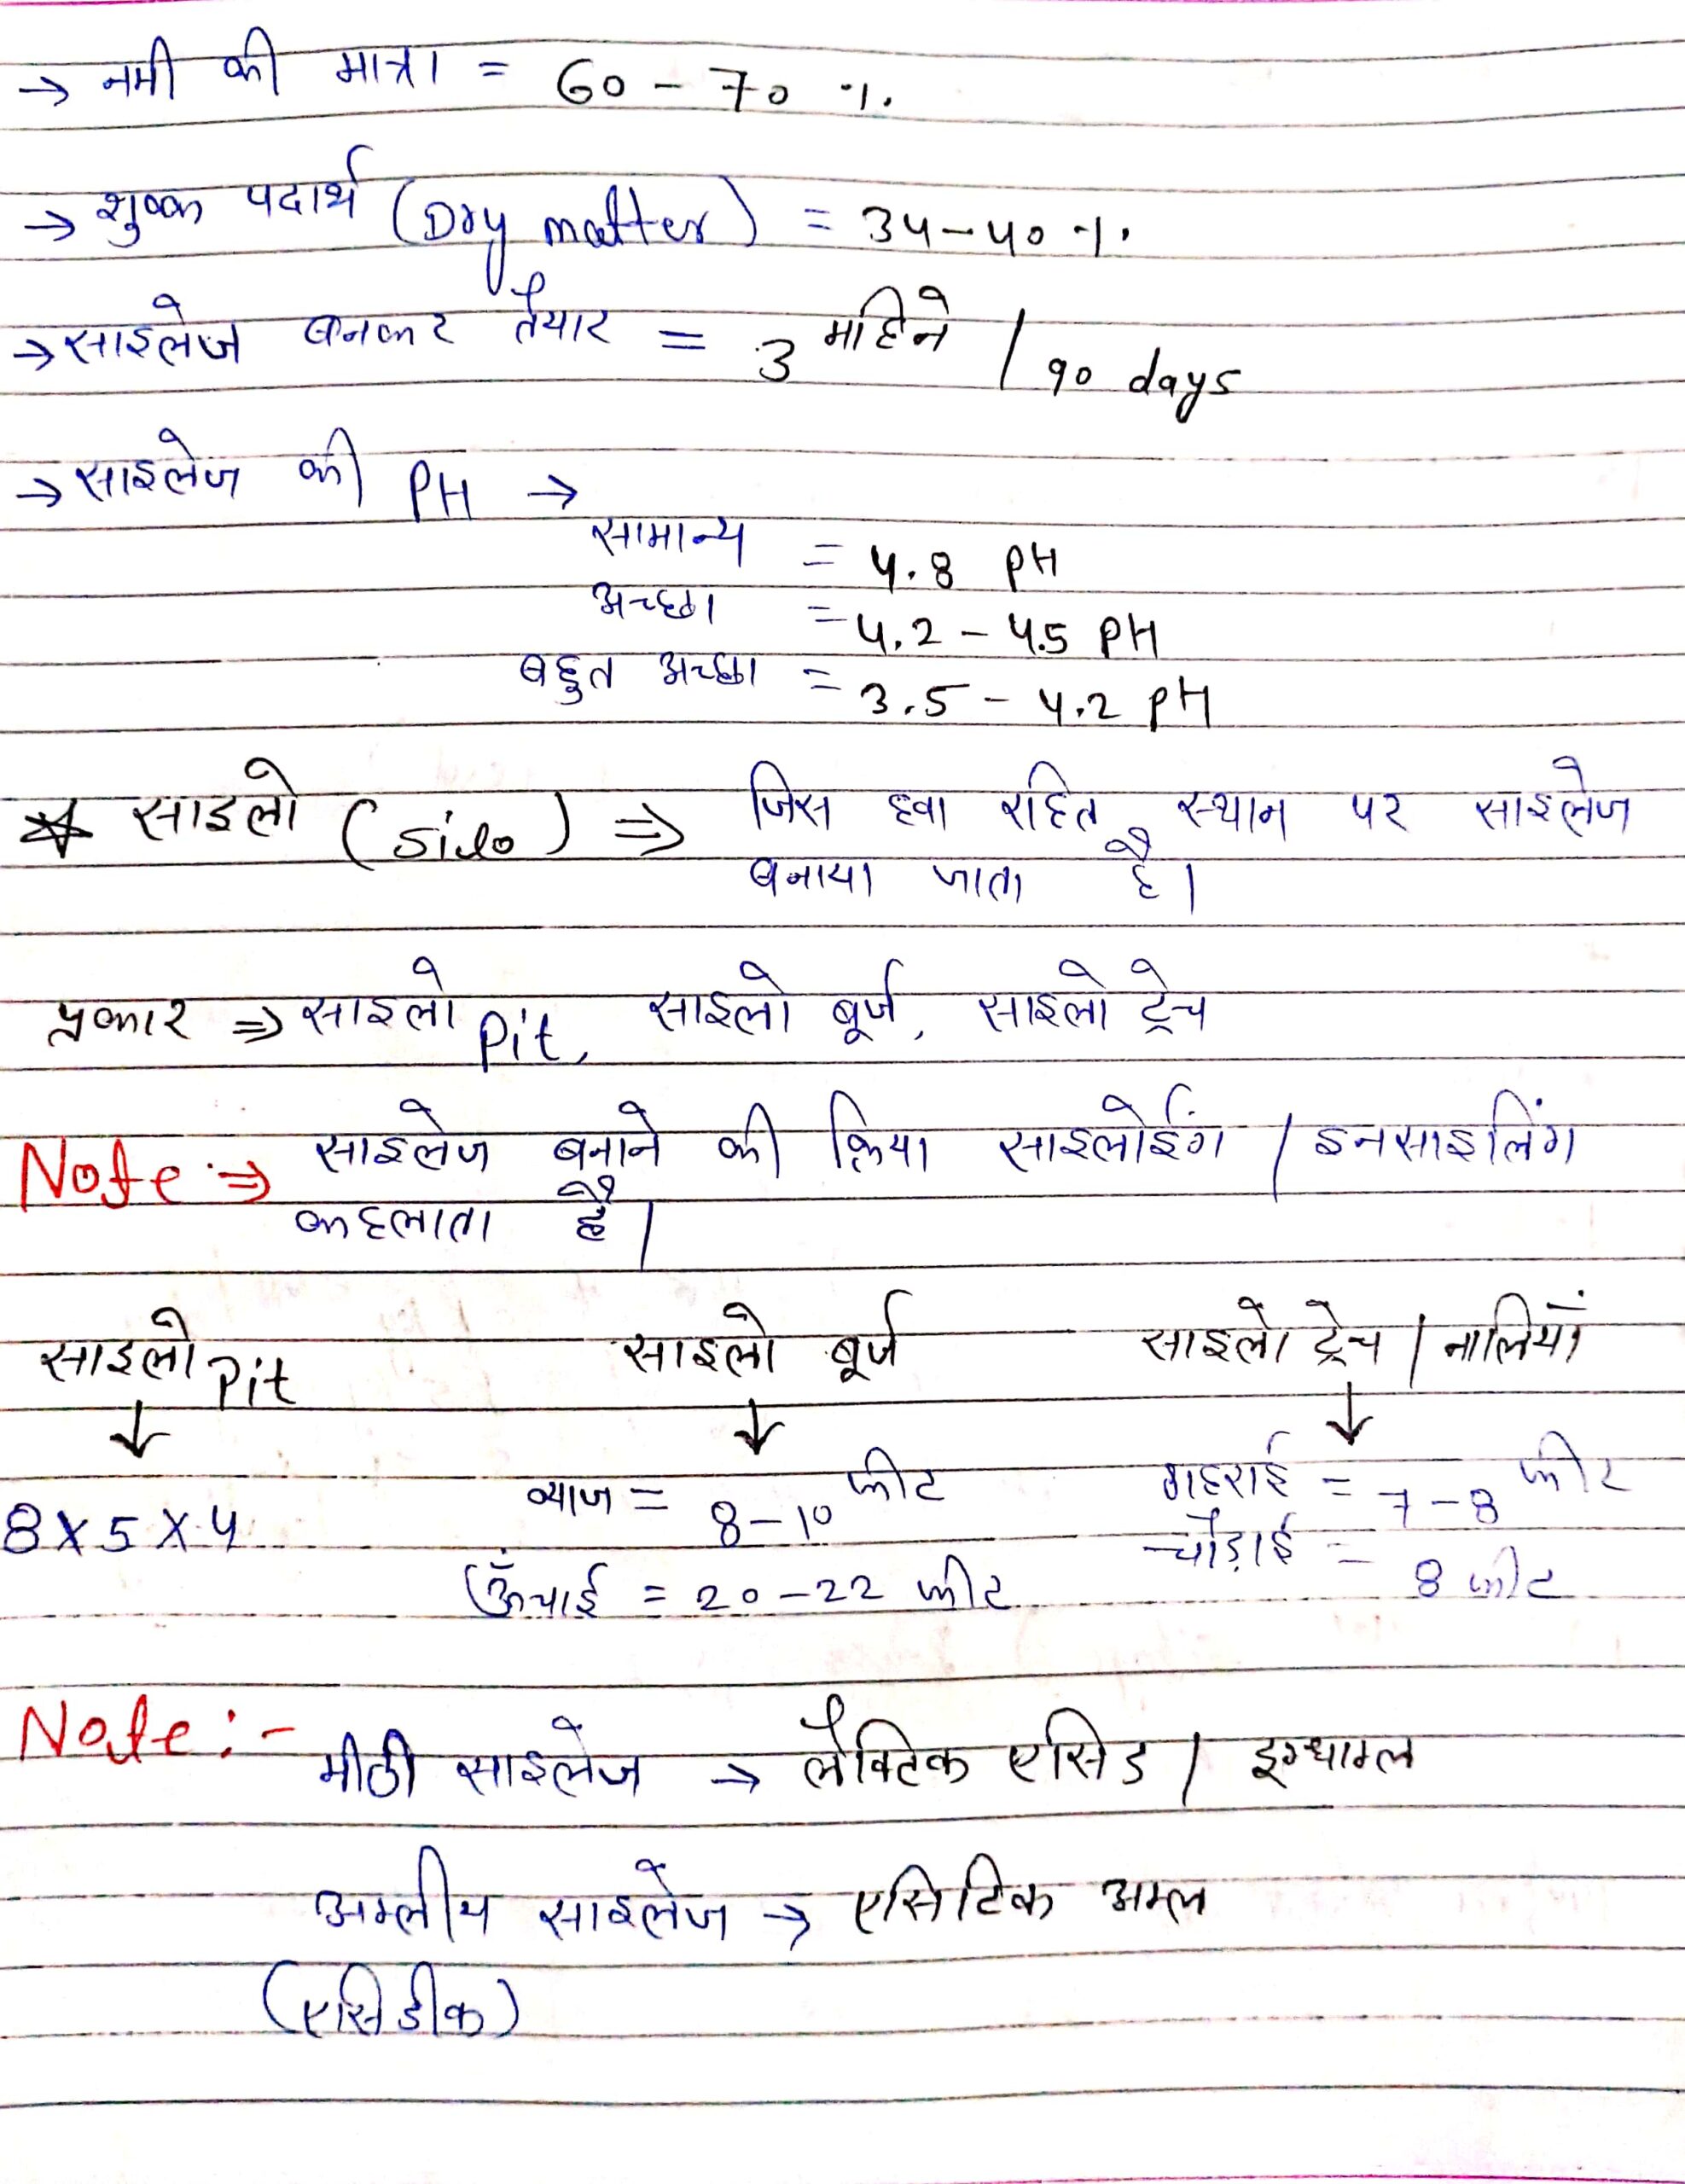 → नमी की मात्रा = 60 - 70 %
→ शुष्क पदार्थ (Dry matter) = 34-40 %
→ साइलेज बनकर तैयार = 3 महिने / 90 days
→ साइलेज की PH →
सामान्य = 4.8 PH
अच्छा = 4.2 - 4.5 PH
बहुत अच्छा = 3.5 - 4.2 PH
★ साइलो (silo) ⇒ जिस हवा रहित स्थान पर साइलेज
बनाया जाता है।
प्रकार ⇒ साइलो Pit, साइलो बूर्ज, साइलो ट्रेच
Note ⇒ साइलेज बनाने की क्रिया साइलोईंग / इनसाइलिंग
कहलाता है।
साइलो Pit साइलो बूर्ज साइलो ट्रेच / नालियां
↓ ↓ ↓
8 X 5 X 4 व्याज = 8-10 फीट गहराई = 7-8 फीट
ऊँचाई = 20-22 फीट चौड़ाई = 8 फीट
Note :- मीठी साइलेज → लैक्टिक एसिड / दुग्धाम्ल
अम्लीय साइलेज → एसिटिक अम्ल
(एसिडीक)